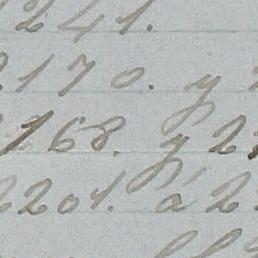 2241.
2170. y
168. y 2
2201. á 2